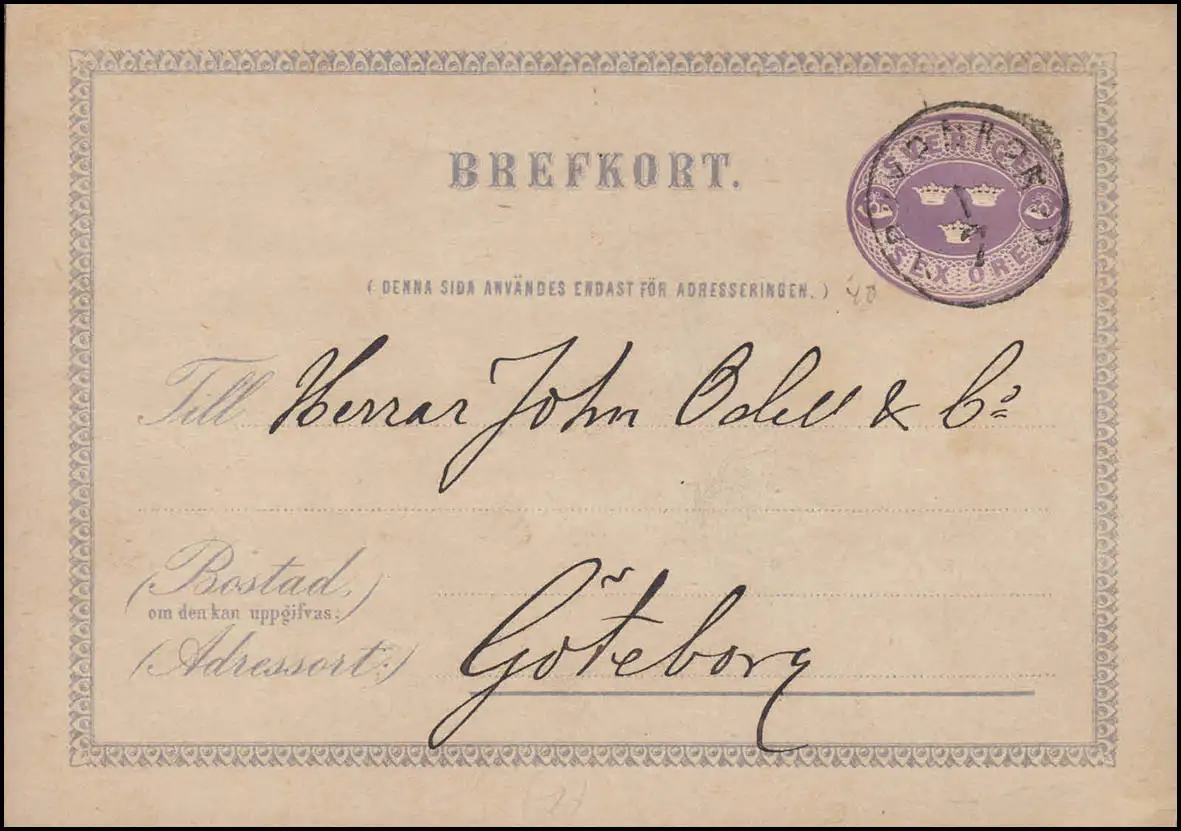 BREFKORT.
SVERIGE
SEX ÖRE
(DENNA SIDA ANVÄNDES ENDAST FÖR ADRESSERINGEN.)
Till Herrar John Odell & Co
(Bostad,)
om den kan uppgifvas:
(Adressort:) Göteborg